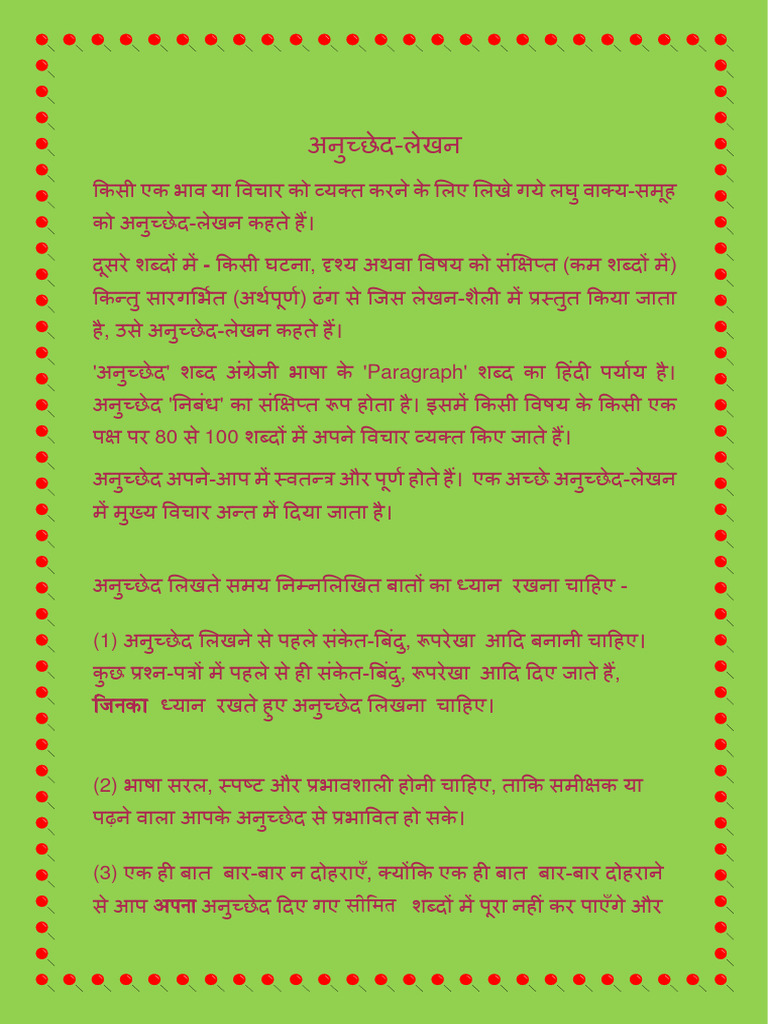 अनुच्छेद-लेखन
किसी एक भाव या विचार को व्यक्त करने के लिए लिखे गये लघु वाक्य-समूह
को अनुच्छेद-लेखन कहते हैं।
दूसरे शब्दों में - किसी घटना, दृश्य अथवा विषय को संक्षिप्त (कम शब्दों में)
किन्तु सारगर्भित (अर्थपूर्ण) ढंग से जिस लेखन-शैली में प्रस्तुत किया जाता
है, उसे अनुच्छेद-लेखन कहते हैं।
'अनुच्छेद' शब्द अंग्रेजी भाषा के 'Paragraph' शब्द का हिंदी पर्याय है।
अनुच्छेद 'निबंध' का संक्षिप्त रूप होता है। इसमें किसी विषय के किसी एक
पक्ष पर 80 से 100 शब्दों में अपने विचार व्यक्त किए जाते हैं।
अनुच्छेद अपने-आप में स्वतन्त्र और पूर्ण होते हैं। एक अच्छे अनुच्छेद-लेखन
में मुख्य विचार अन्त में दिया जाता है।
अनुच्छेद लिखते समय निम्नलिखित बातों का ध्यान रखना चाहिए -
(1) अनुच्छेद लिखने से पहले संकेत-बिंदु, रूपरेखा आदि बनानी चाहिए।
कुछ प्रश्न-पत्रों में पहले से ही संकेत-बिंदु, रूपरेखा आदि दिए जाते हैं,
जिनका ध्यान रखते हुए अनुच्छेद लिखना चाहिए।
(2) भाषा सरल, स्पष्ट और प्रभावशाली होनी चाहिए, ताकि समीक्षक या
पढ़ने वाला आपके अनुच्छेद से प्रभावित हो सके।
(3) एक ही बात बार-बार न दोहराएँ, क्योंकि एक ही बात बार-बार दोहराने
से आप अपना अनुच्छेद दिए गए सीमित शब्दों में पूरा नहीं कर पाएँगे और